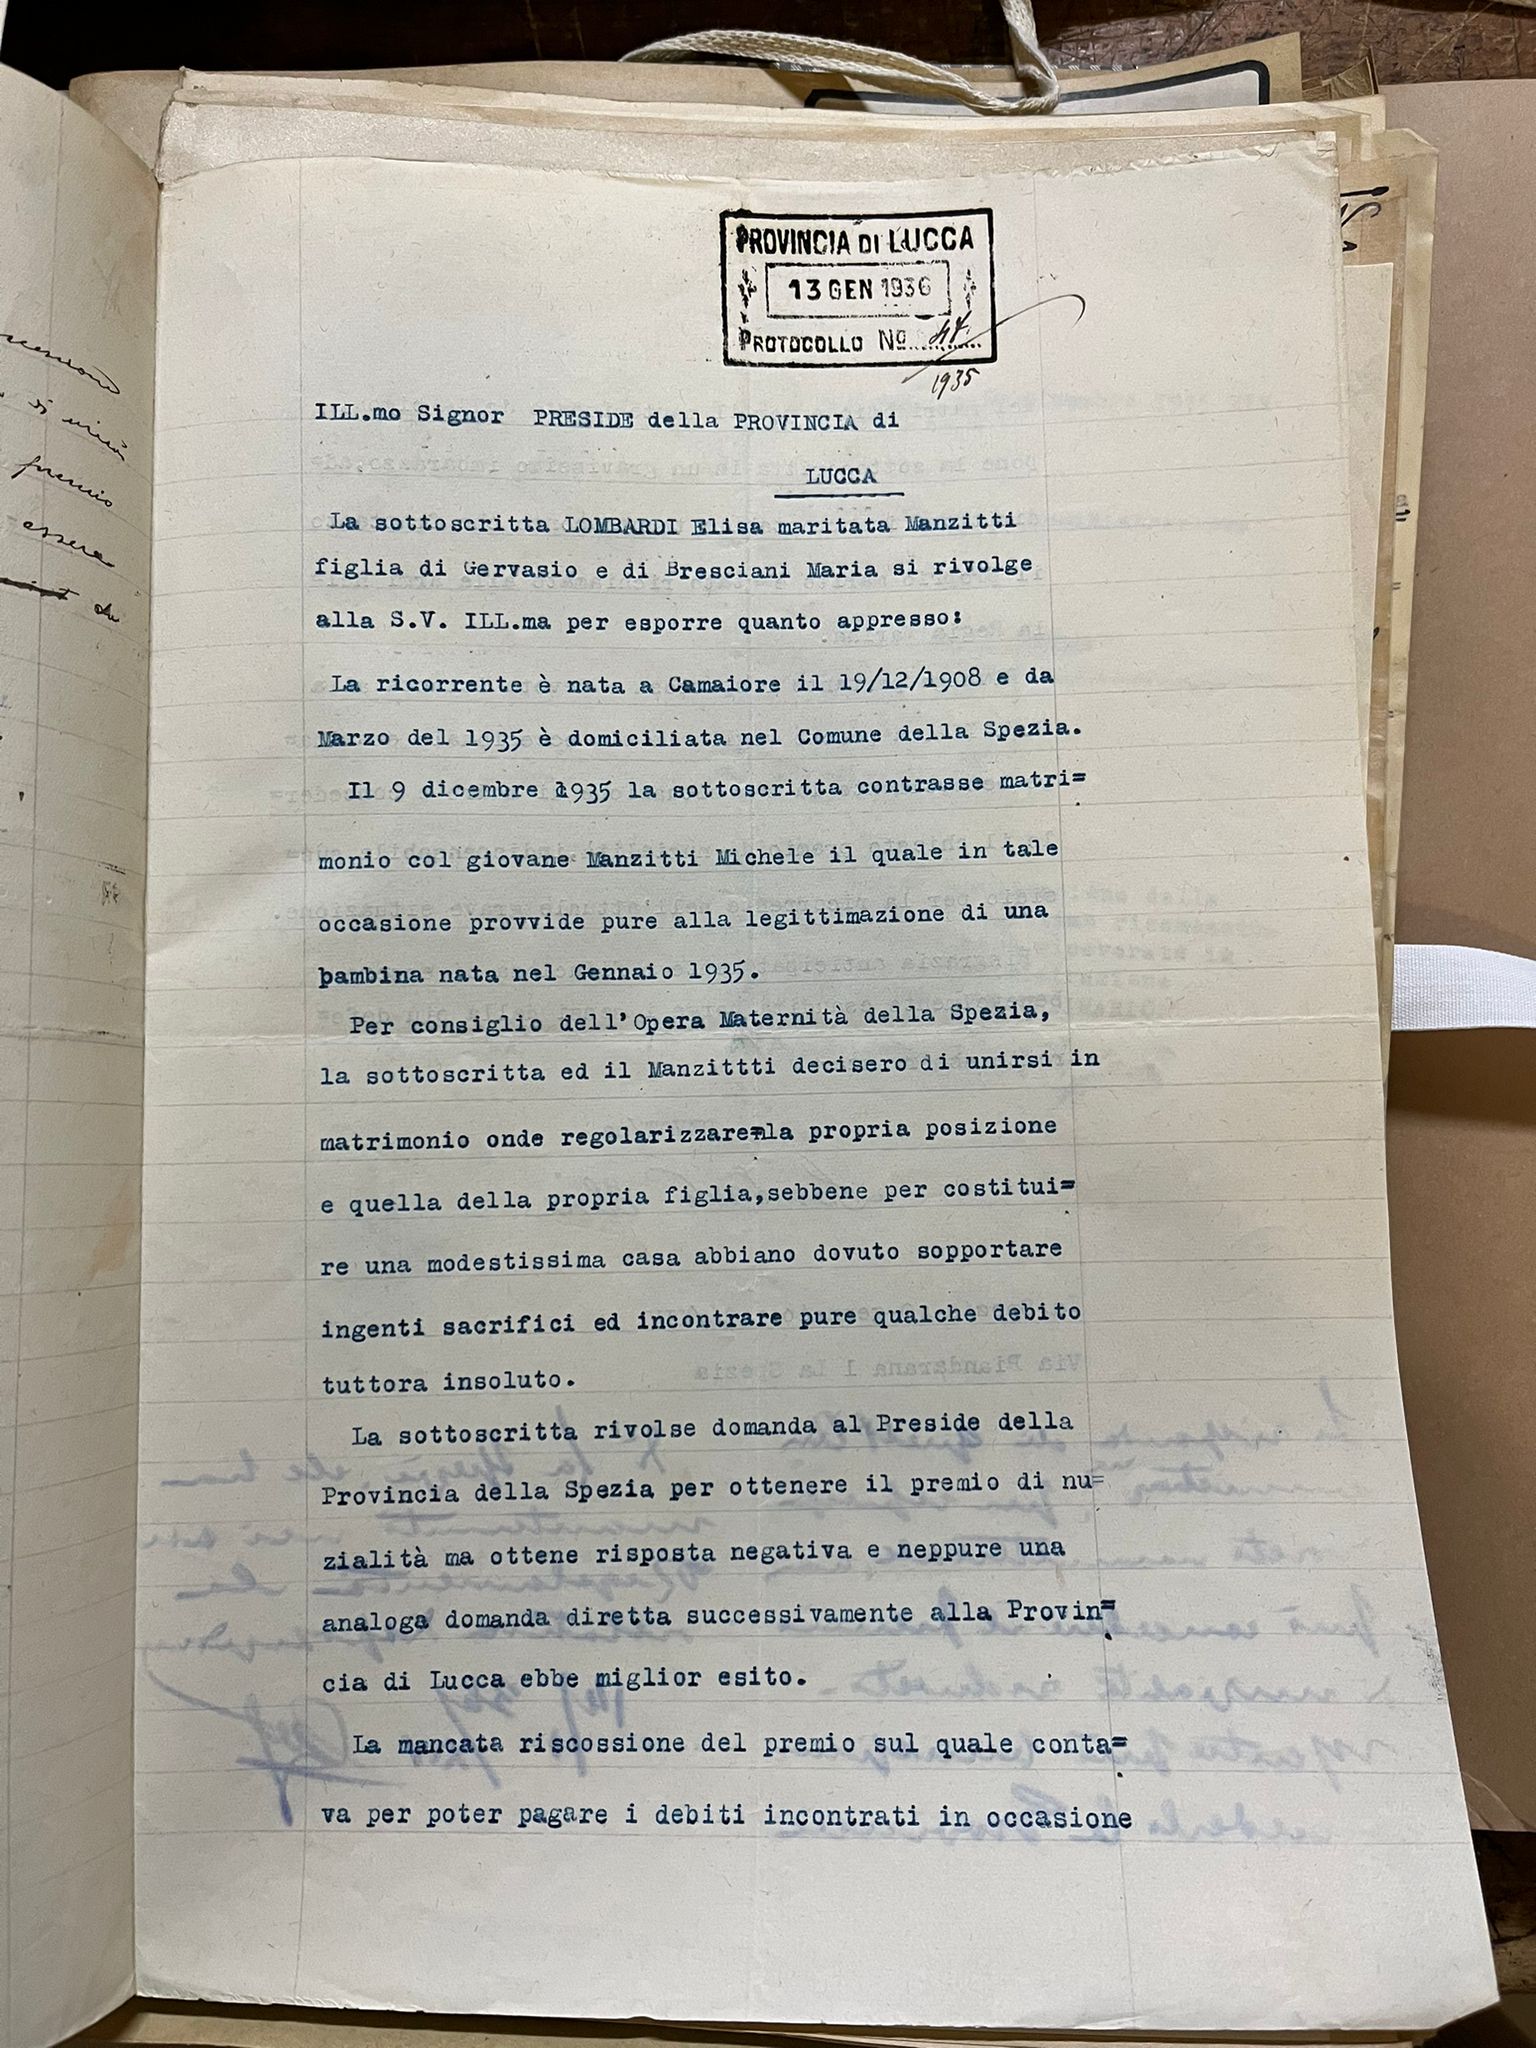 PROVINCIA DI LUCCA
13 GEN 1936
PROTOCOLLO No.
1935
ILL.mo Signor PRESIDE della PROVINCIA di
LUCCA
La sottoscritta LOMBARDI Elisa maritata Manzitti
figlia di Gervasio e di Bresciani Maria si rivolge
alla S.V. ILL.ma per esporre quanto appresso:
La ricorrente è nata a Camaiore il 19/12/1908 e da
Marzo del 1935 è domiciliata nel Comune della Spezia.
Il 9 dicembre 1935 la sottoscritta contrasse matri=
monio col giovane Manzitti Michele il quale in tale
occasione provvide pure alla legittimazione di una
bambina nata nel Gennaio 1935.
Per consiglio dell'Opera Maternità della Spezia,
la sottoscritta ed il Manzittti decisero di unirsi in
matrimonio onde regolarizzare la propria posizione
e quella della propria figlia,sebbene per costitui=
re una modestissima casa abbiano dovuto sopportare
ingenti sacrifici ed incontrare pure qualche debito
tuttora insoluto.
La sottoscritta rivolse domanda al Preside della
Provincia della Spezia per ottenere il premio di nu=
zialità ma ottene risposta negativa e neppure una
analoga domanda diretta successivamente alla Provin=
cia di Lucca ebbe miglior esito.
La mancata riscossione del premio sul quale conta=
va per poter pagare i debiti incontrati in occasione
si unirà
premio
essere